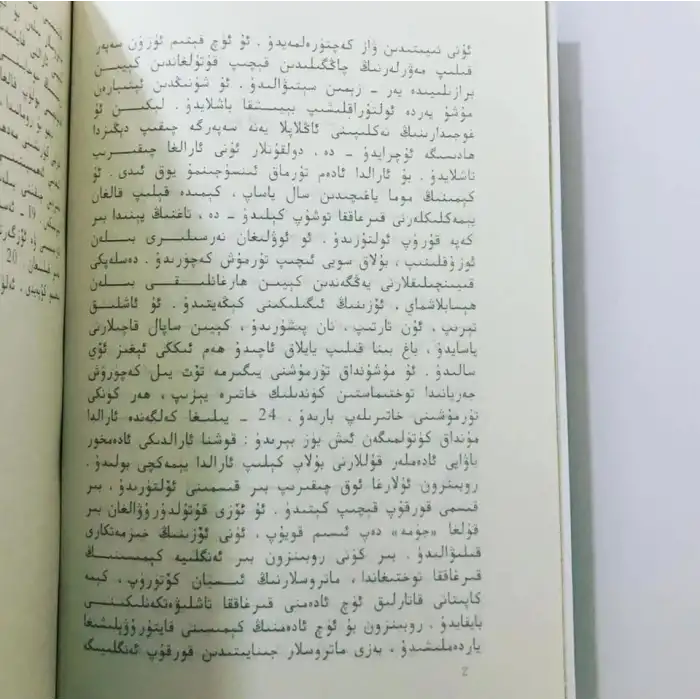 ئۇنى نىيىتىدىن ۋاز كەچتۈرەلمەيدۇ. ئۇ ئۈچ قېتىم ئۇزۇن سەپەر
قىلىپ مەۋرلەرنىڭ چاڭگىلىدىن قېچىپ قۇتۇلغاندىن كېيىن
برازىلىيىدە يەر ـ زېمىن سېتىۋالىدۇ. ئۇ شۇنىڭدىن ئېتىبارەن
مۇشۇ يەردە ئولتۇراقلىشىپ بېيىشقا باشلايدۇ. لېكىن ئۇ
غوجىدارىنىڭ تەكلىپىنى ئاڭلاپلا يەنە سەپەرگە چىقىپ دېڭىزدا
ھادىسىگە ئۇچرايدۇ ـ دە، دولقۇنلار ئۇنى ئارالغا چىقىرىپ
تاشلايدۇ. بۇ ئارالدا ئادەم تۇرماق ئىنسۇجىنمۇ يوق ئىدى. ئۇ
كېمىنىڭ موما ياغىچىدىن سال ياساپ، كېمىدە قېلىپ قالغان
يېمەكلىكلەرنى قىرغاققا توشۇپ كېلىدۇ ـ دە، تاغنىڭ يېنىدا بىر
كەپە قۇرۇپ ئولتۇرىدۇ. ئۇ ئوۋلىغان نەرسىلىرى بىلەن
ئوزۇقلىنىپ، بۇلاق سۈيى ئىچىپ تۇرمۇش كەچۈرىدۇ. دەسلەپكى
قىيىنچىلىقلارنى يەڭگەندىن كېيىن ھارغانلىقى بىلەن
ھېسابلاشماي، ئۆزىنىڭ ئىگىلىكىنى كېڭەيتىدۇ. ئۇ ئاشلىق
تېرىپ، ئۇن تارتىپ، نان پىشۇرىدۇ، كېيىن ساپال قاچىلارنى
ياسايدۇ، باغ بىنا قىلىپ يايلاق ئاچىدۇ ھەم ئىككى ئېغىز ئۆي
سالىدۇ. ئۇ مۇشۇنداق تۇرمۇشنى يىگىرمە تۆت يىل كەچۈرۈش
جەريانىدا توختىماستىن كۈندىلىك خاتىرە يېزىپ، ھەر كۈنكى
تۇرمۇشىنى خاتىرىلەپ بارىدۇ. 24 ـ يىلىغا كەلگەندە ئارالدا
مۇنداق كۈتۈلمىگەن ئىش يۈز بېرىدۇ: قوشنا ئارالدىكى ئادەمخور
ياۋايى ئادەملەر قۇللارنى بۇلاپ كېلىپ ئارالدا يېمەكچى بولىدۇ.
روبىنزون ئۇلارغا ئوق چىقىرىپ بىر قىسمىنى ئۆلتۈرىدۇ، بىر
قىسمى قورقۇپ قېچىپ كېتىدۇ. ئۇ ئۆزى قۇتۇلدۇرۇۋالغان بىر
قۇلغا «جۈمە» دەپ ئىسىم قويۇپ، ئۇنى ئۆزىنىڭ خىزمەتكارى
قىلىۋالىدۇ. بىر كۈنى روبىنزون بىر ئەنگلىيە كېمىسىنىڭ
قىرغاققا توختىغاندا، ماتروسلارنىڭ ئىسيان كۆتۈرۈپ، كېمە
كاپىتانى قاتارلىق ئۈچ ئادەمنى قىرغاققا تاشلىۋەتكەنلىكىنى
بايقايدۇ. روبىنزون بۇ ئۈچ ئادەمنىڭ كېمىسىنى قايتۇرۇۋېلىشىغا
ياردەملىشىدۇ، بەزى ماتروسلار جىنايىتىدىن قورقۇپ ئەنگلىيىگە
2